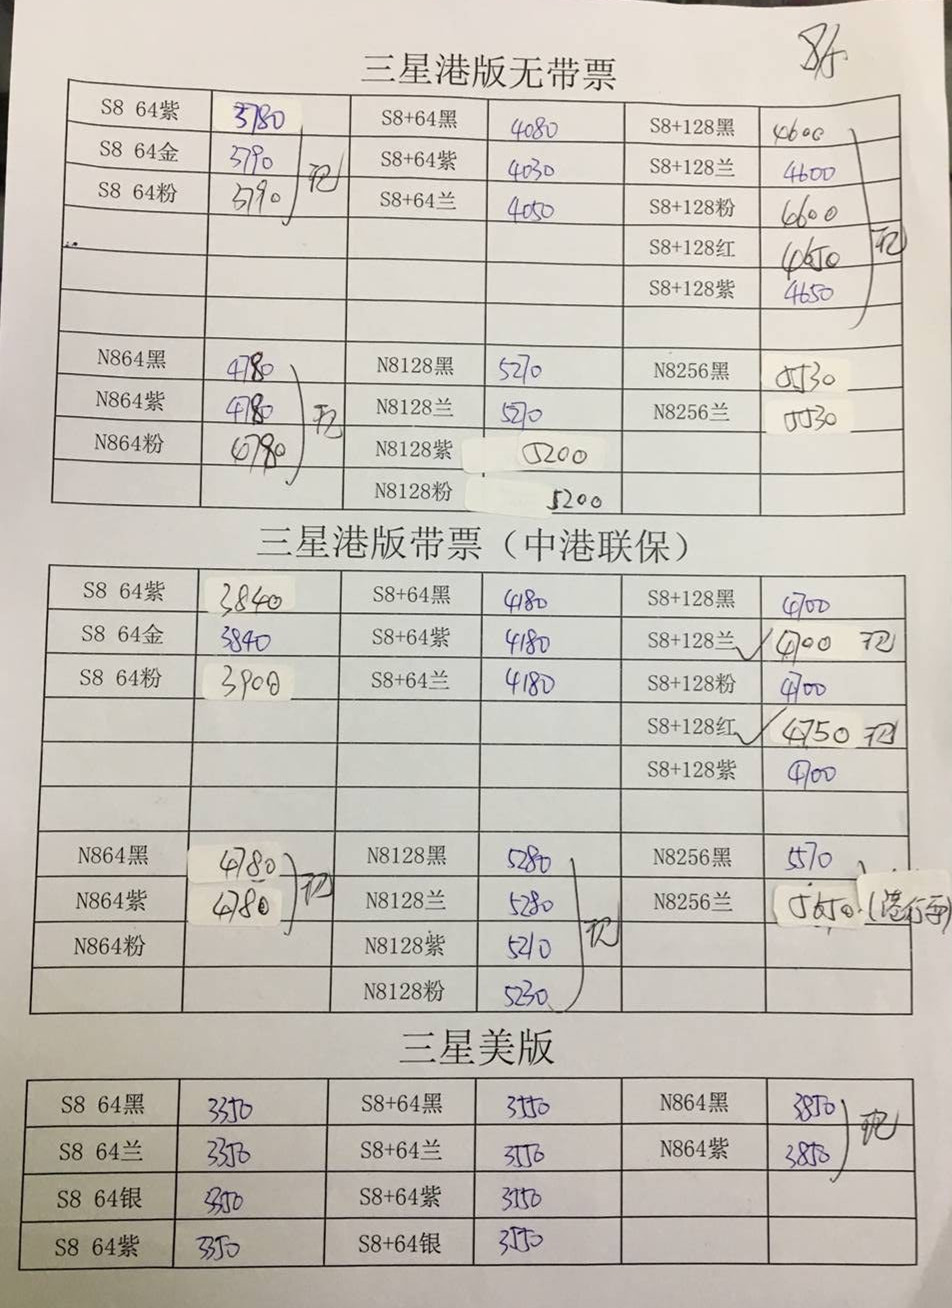 三星港版无带票
S8 64紫 3780 S8+64黑 4080 S8+128黑 4600
S8 64金 3790 S8+64紫 4030 S8+128兰 4600
S8 64粉 3790 现 S8+64兰 4050 S8+128粉 4600
S8+128红 4650 现
S8+128紫 4650
N864黑 4780 N8128黑 5270 N8256黑 5530
N864紫 4780 现 N8128兰 5270 N8256兰 5530
N864粉 4780 N8128紫 5200
N8128粉 5200
三星港版带票（中港联保）
S8 64紫 3840 S8+64黑 4180 S8+128黑 4700
S8 64金 3840 S8+64紫 4180 S8+128兰 4700 现
S8 64粉 3900 S8+64兰 4180 S8+128粉 4700
S8+128红 4750 现
S8+128紫 4700
N864黑 4780 N8128黑 5280 N8256黑 5570
N864紫 4780 现 N8128兰 5280 N8256兰 5650 (港行票)
N864粉 N8128紫 5210 现
N8128粉 5230
三星美版
S8 64黑 3350 S8+64黑 3550 N864黑 3850 现
S8 64兰 3350 S8+64兰 3550 N864紫 3850
S8 64银 3350 S8+64紫 3550
S8 64紫 3350 S8+64银 3550